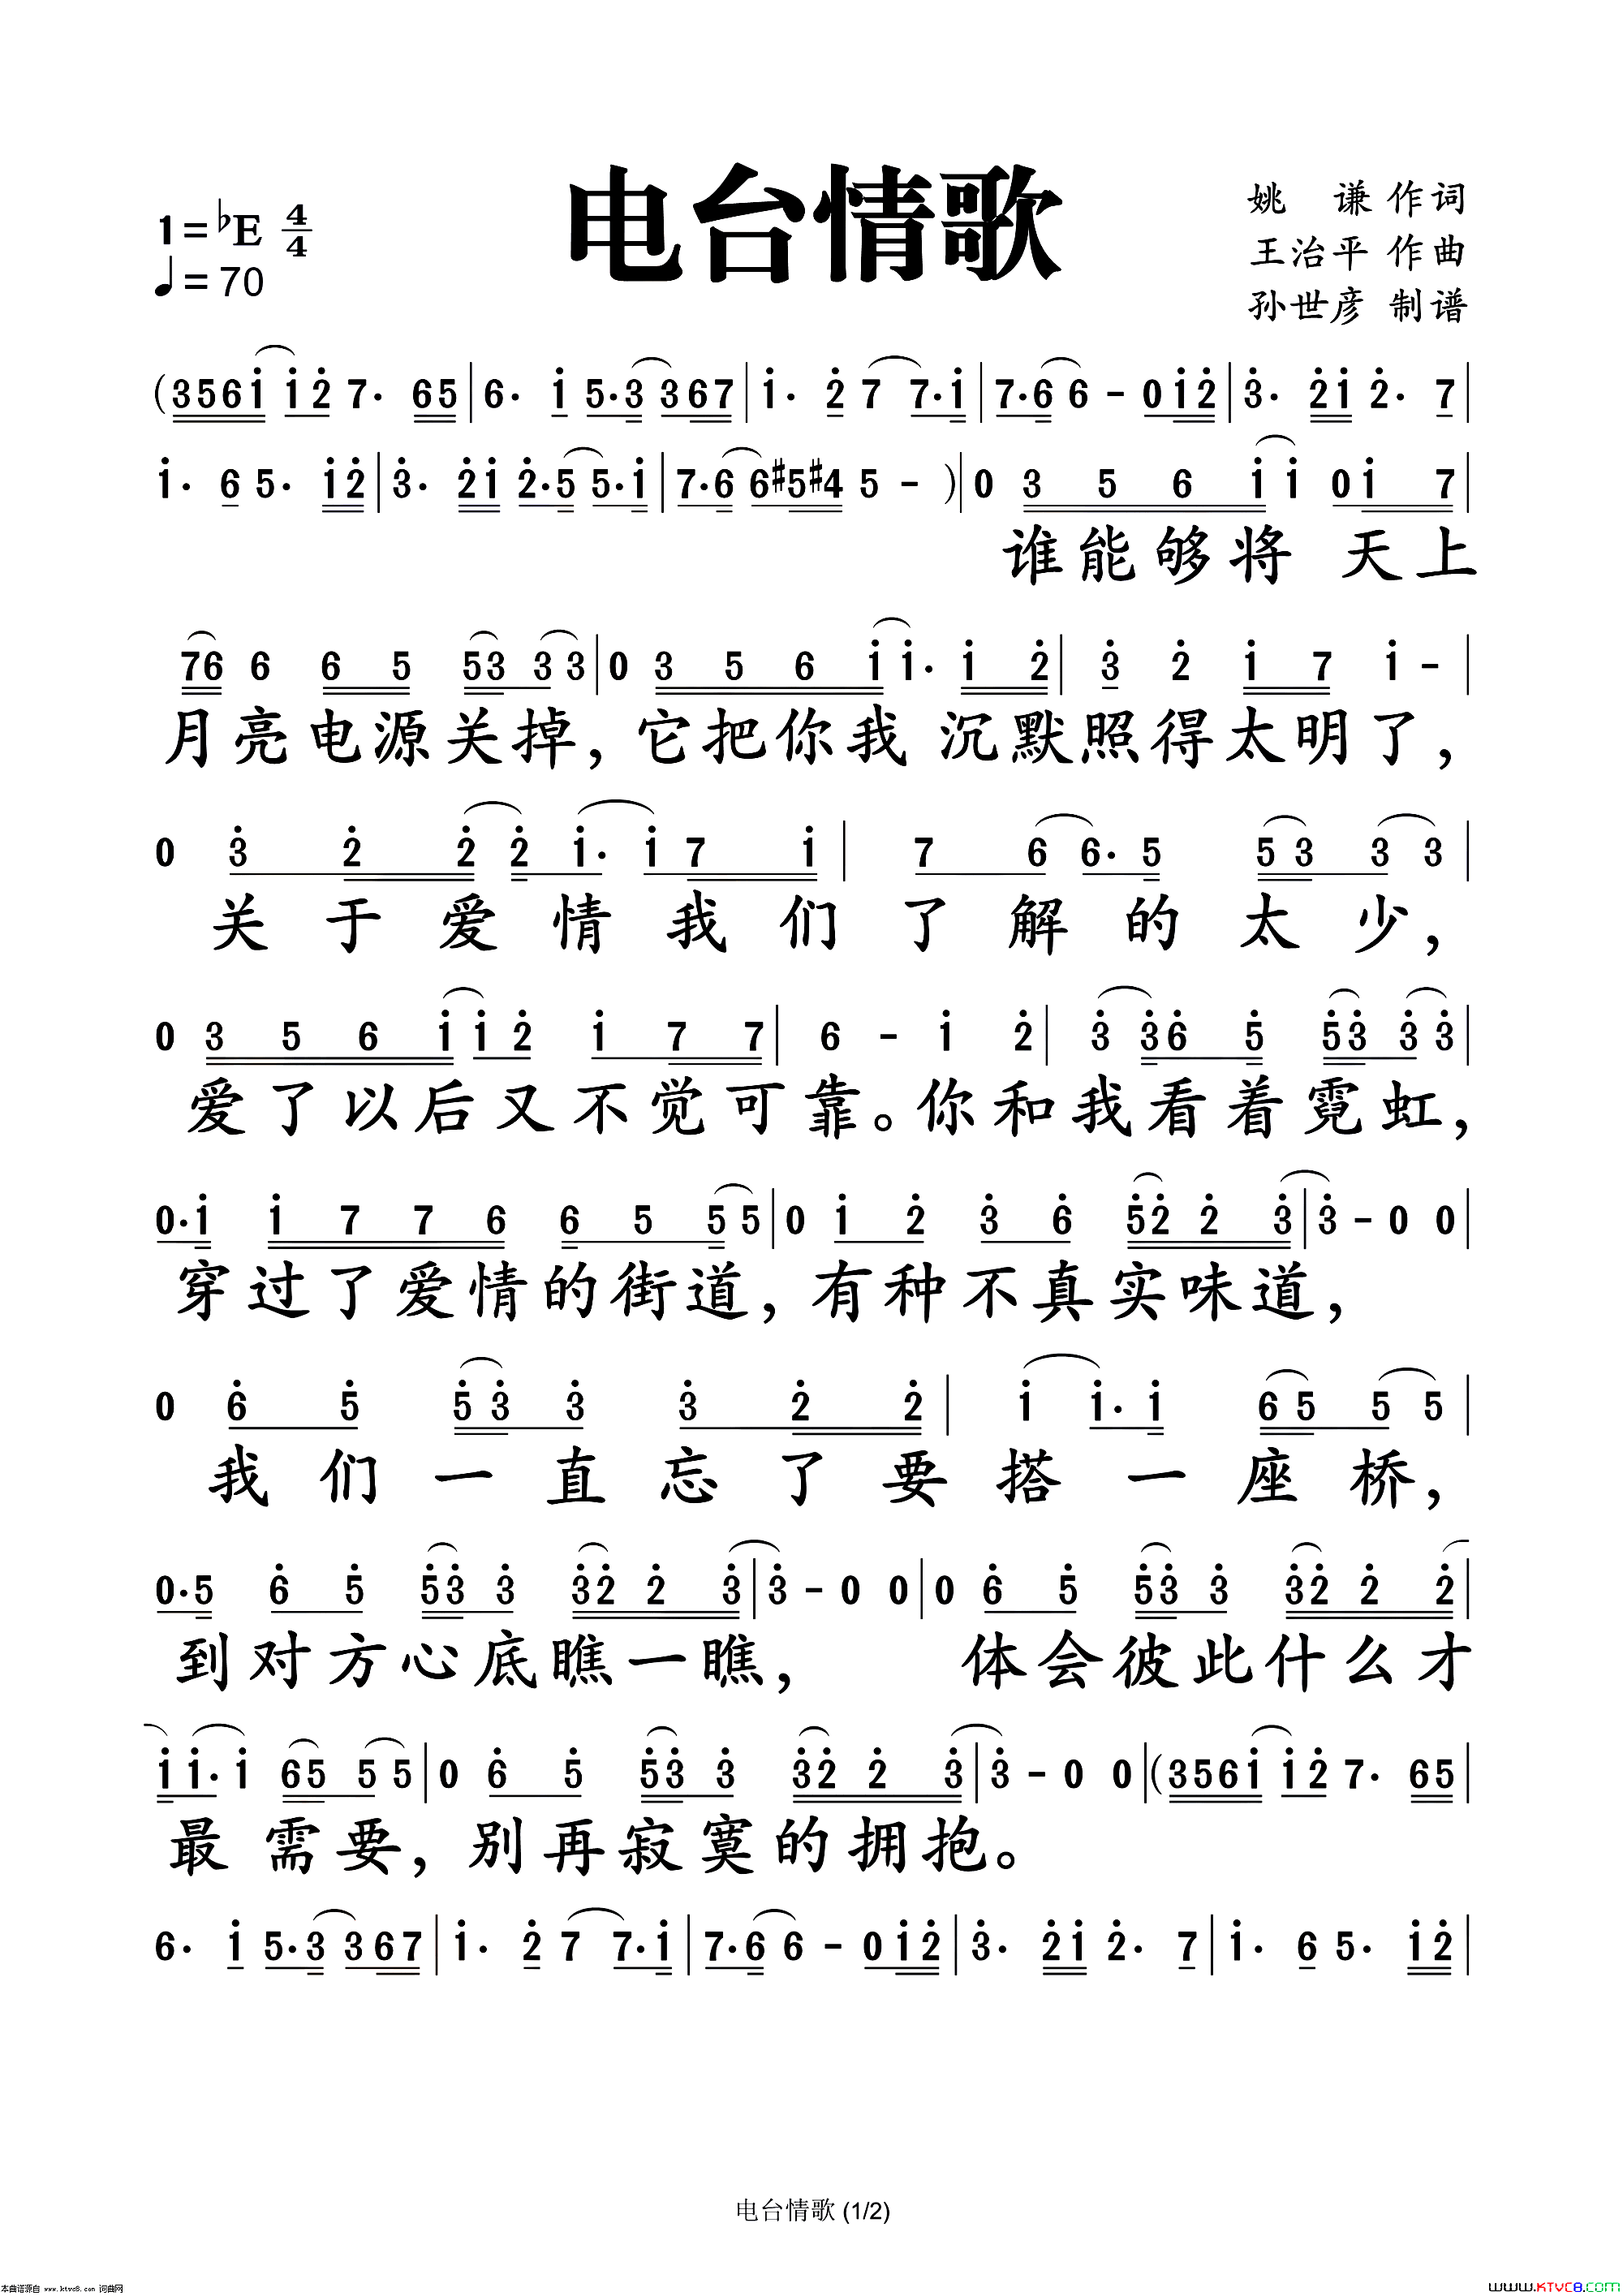 电台情歌
1=♭E 4/4
♩=70
姚 谦 作词
王治平 作曲
孙世彦 制谱
(356i i2 7· 65|6· i 5·3 367|i· 2 7 7·i|7·6 6 - 0i2|3· 2i 2· 7|
i· 6 5· i2|3· 2i 2·5 5·i|7·6 6#5#4 5 - )|0 3 5 6 i i 0i 7|
谁能够将 天上
76 6 6 5 53 3 3|0 3 5 6 i i· i 2|3 2 i 7 i -|
月亮电源关掉，它把你我 沉默照得太明了，
0 3 2 2 2 i· i 7 i|7 6 6·5 53 3 3|
关于爱情我们了解的太少，
0 3 5 6 i i 2 i 7 7|6 - i 2|3 36 5 53 3 3|
爱了以后又不觉可靠。你和我看着霓虹，
0·i i 7 7 6 6 5 5 5|0 i 2 3 6 52 2 3|3 - 0 0|
穿过了爱情的街道，有种不真实味道，
0 6 5 53 3 3 2 2|i i·i 65 5 5|
我们一直忘了要搭一座桥，
0·5 6 5 53 3 32 2 3|3 - 0 0|0 6 5 53 3 32 2 2|
到对方心底瞧一瞧， 体会彼此什么才
i i·i 65 5 5|0 6 5 53 3 32 2 3|3 - 0 0|(356i i2 7· 65|
最需要，别再寂寞的拥抱。
6· i 5·3 367|i· 2 7 7·i|7·6 6 - 0i2|3· 2i 2· 7|i· 6 5· i2|
电台情歌 (1/2)
本曲谱源自 www.ktvc8.com 词曲网
WWW.KTVC8.COM